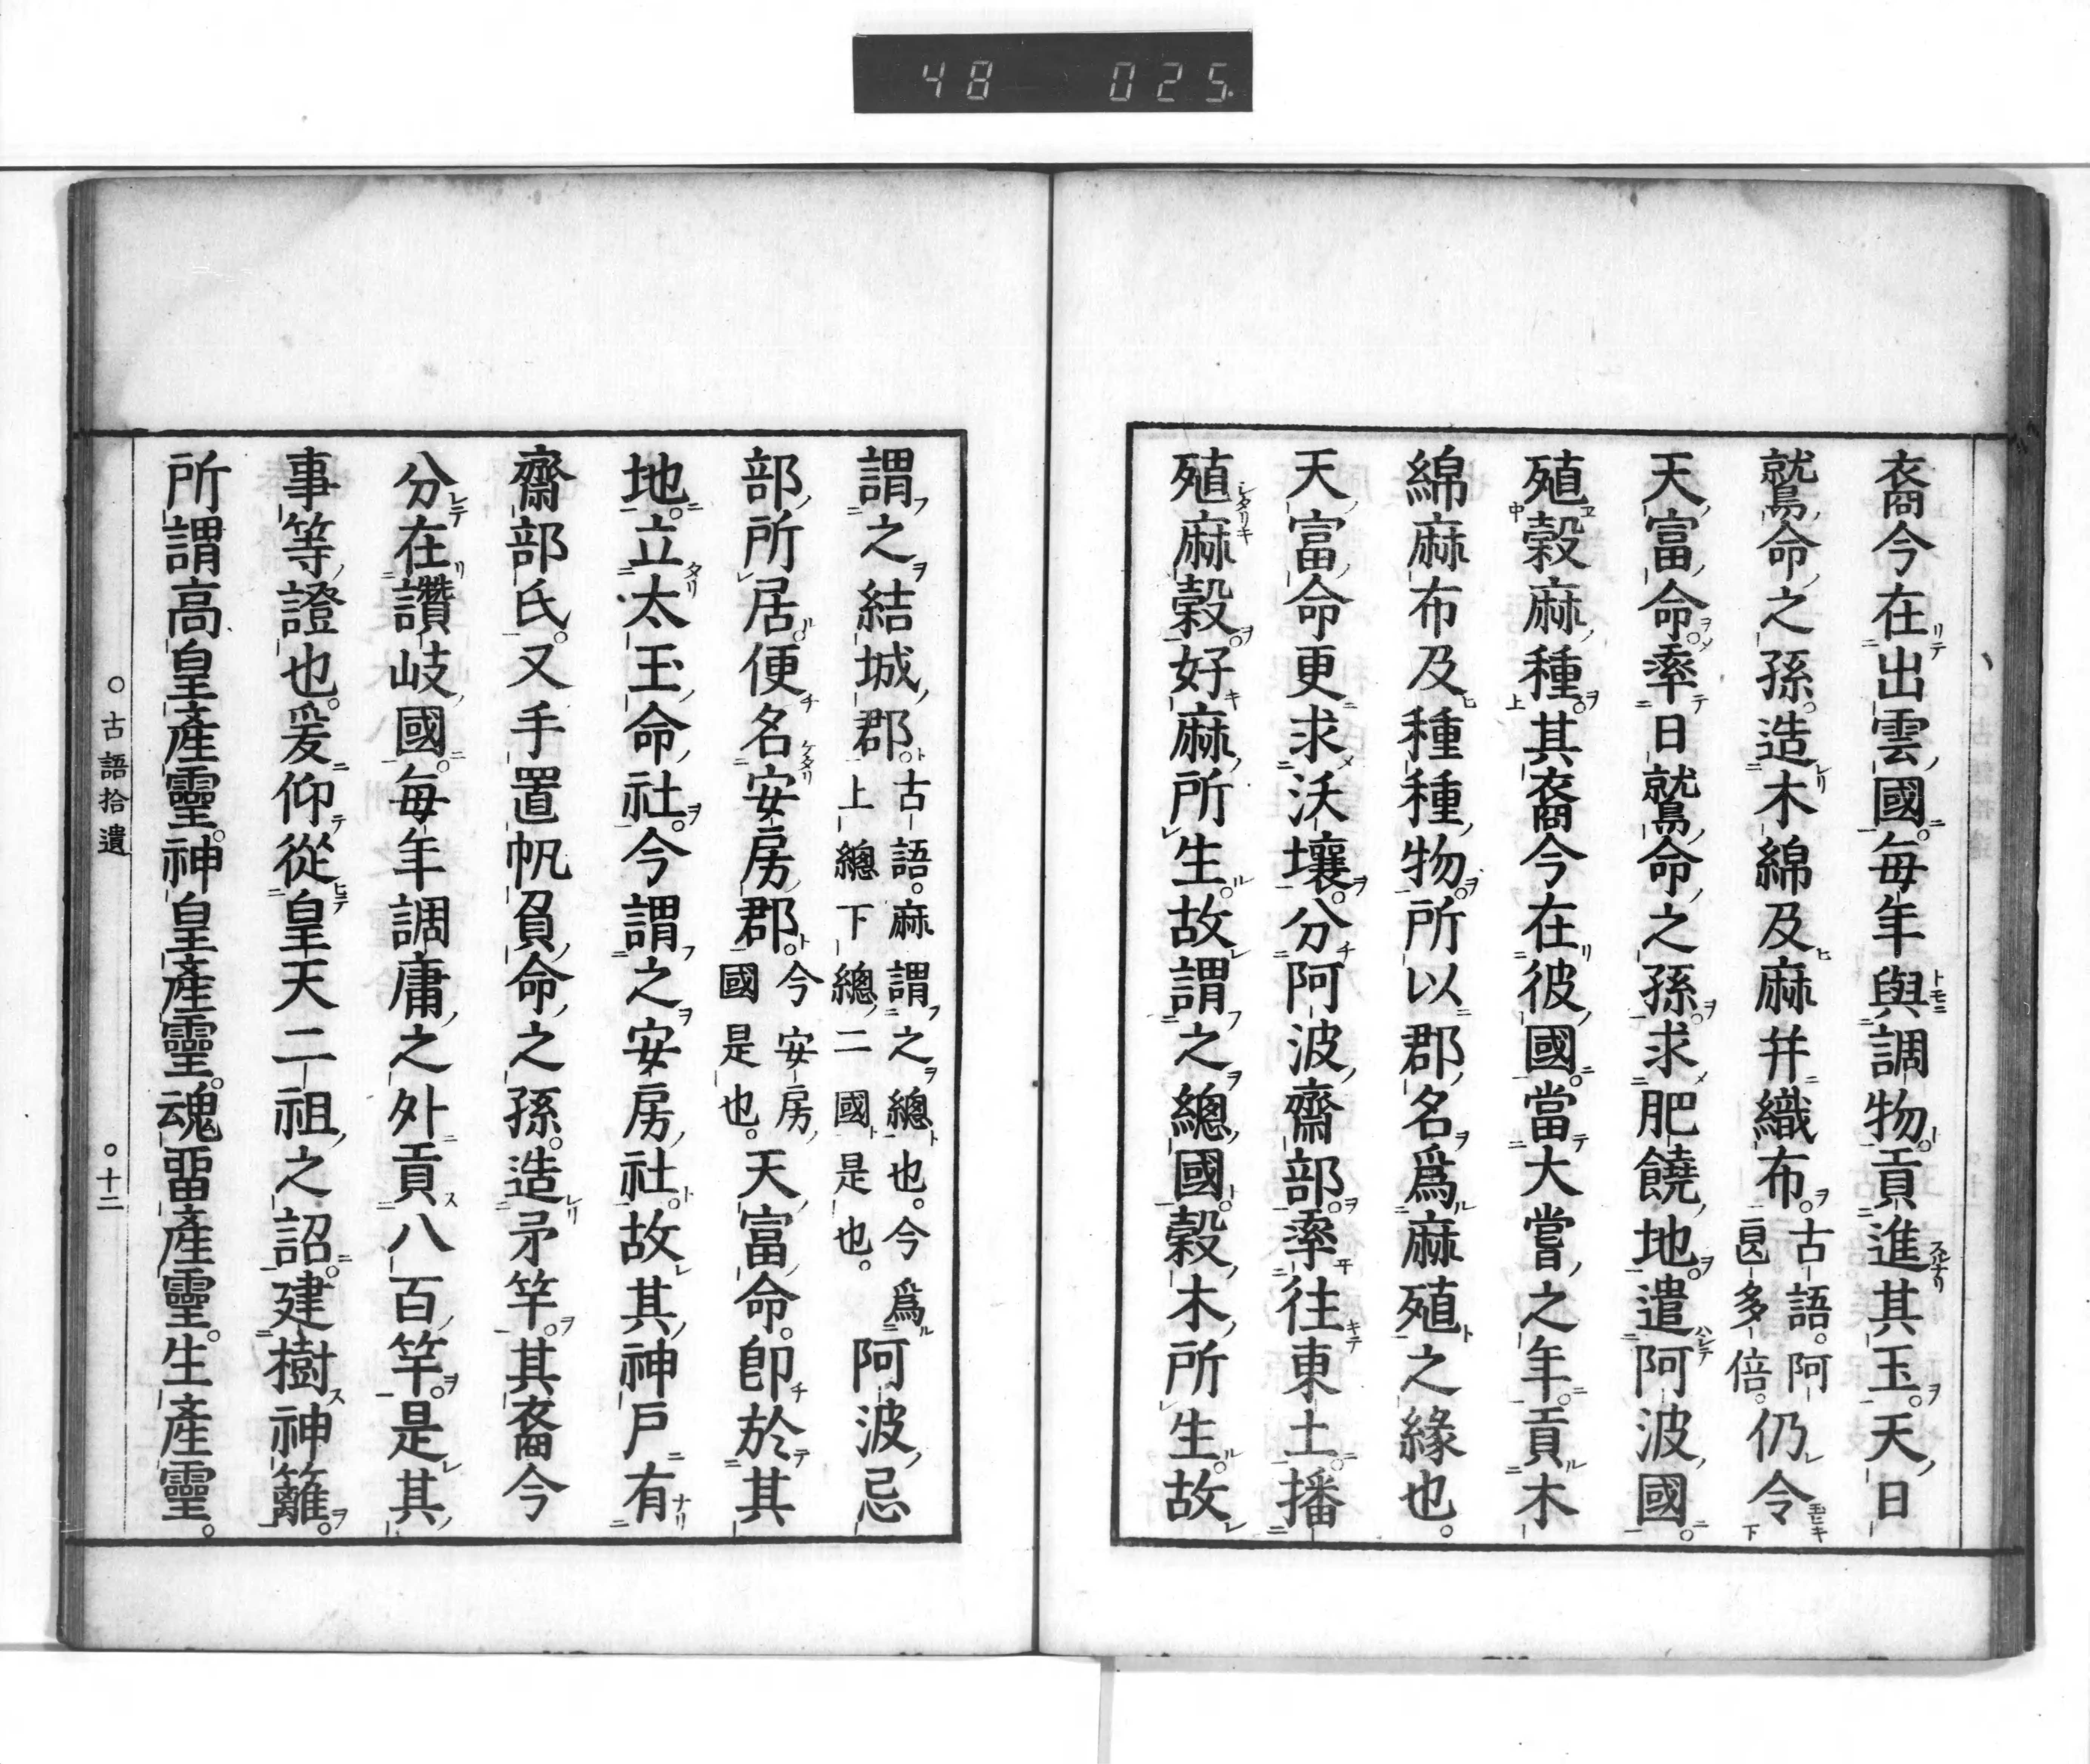 48 025
裔今在出雲國。每年與調物。貢進其玉。天日
鷲命之孫。造木綿及麻幷織布。古語。阿良多倍。仍令
天富命。率日鷲命之孫。求肥饒地。遣阿波國。
殖穀麻種。其裔今在彼國。當大嘗之年。貢木
綿麻布及種種物。所以郡名爲麻殖之緣也。
天富命更求沃壤。分阿波齋部。率往東土。播
殖麻穀。好麻所生。故謂之總國。穀木所生。故
謂之結城郡。古語。麻謂之總也。今爲上總下總二國是也。阿波忌
部所居。便名安房郡。今安房國是也。天富命。卽於其
地。立太玉命社。今謂之安房社。故其神戶有
齋部氏。又手置帆負命之孫。造矛竿。其裔今
分在讚岐國。每年調庸之外貢八百竿。是其
事等證也。爰仰從皇天二祖之詔。建樹神籬。
所謂高皇產靈。神皇產靈。魂留產靈。生產靈。
○古語拾遺 ○十二